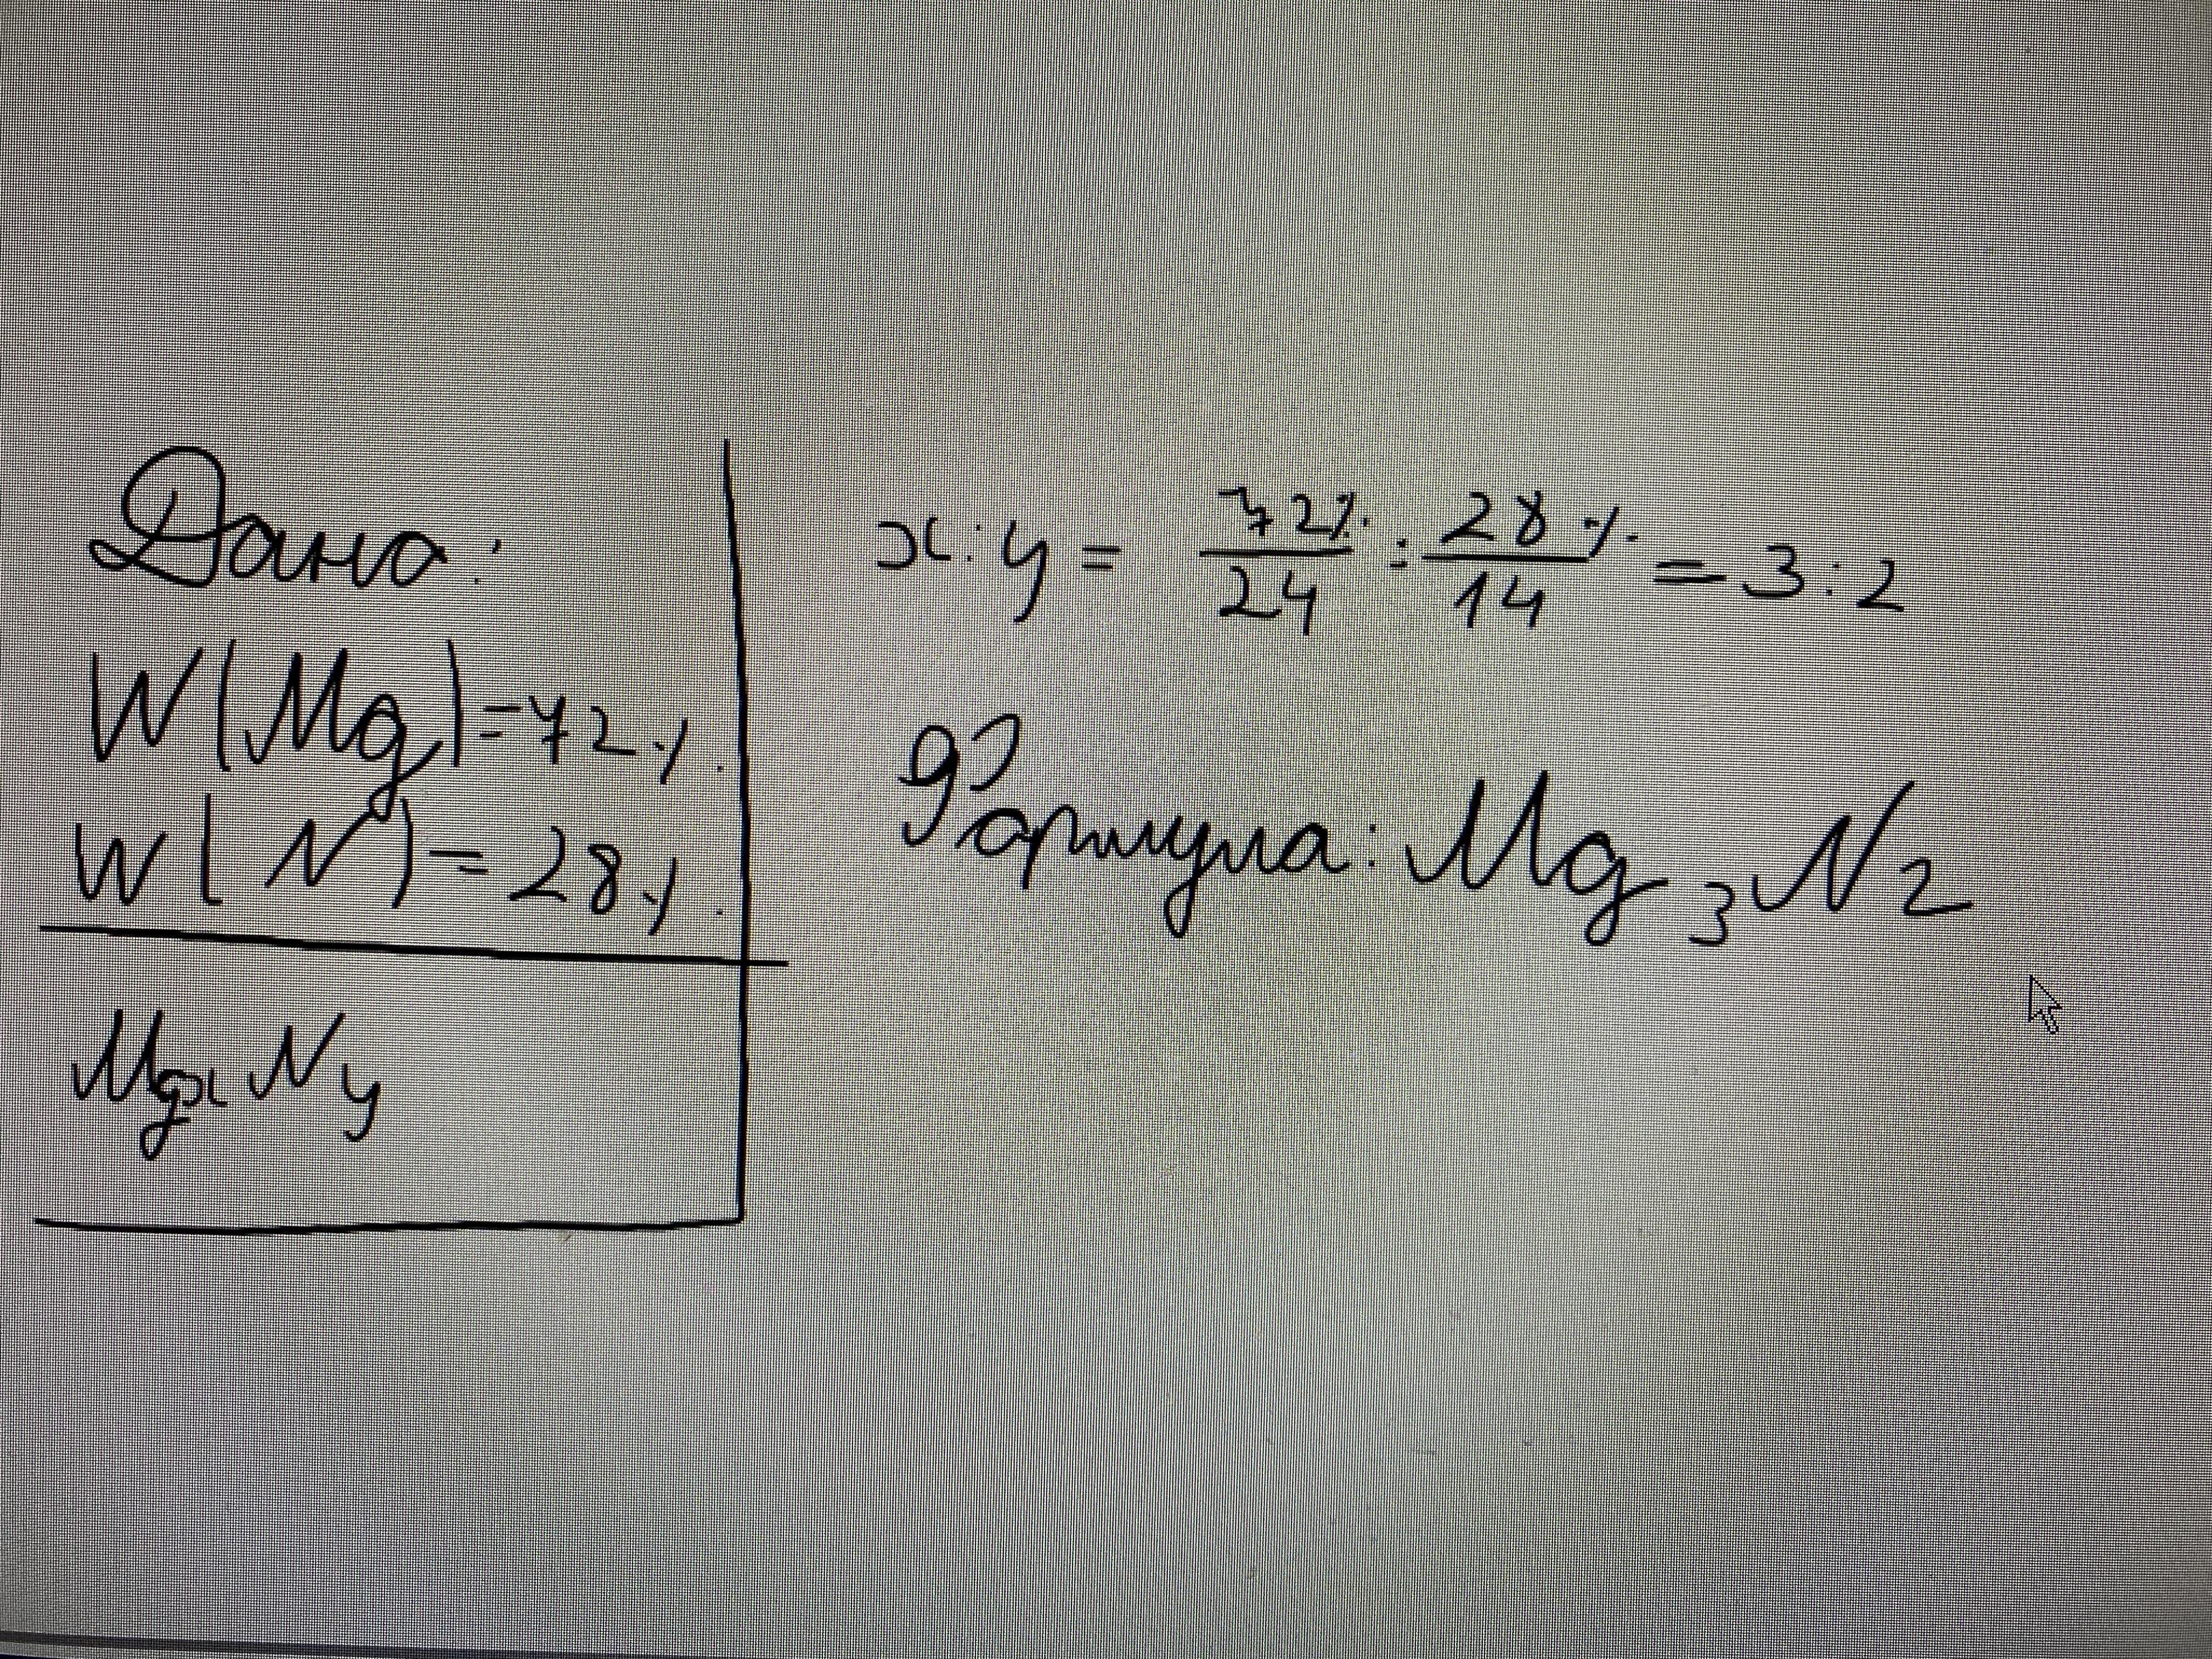 Дано:
W(Mg)=72%
W(N)=28%
MgxNy
x:y = 72%/24 : 28%/14 = 3:2
Формула: Mg3N2